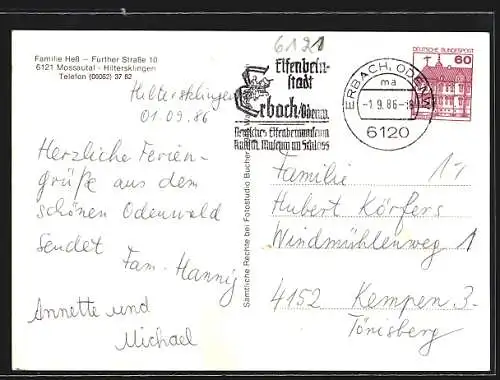 Familie Heß – Further Straße 10
6121 Mossautal - Hiltersklingen
Telefon (00062) 37 82
Hiltersklingen
01.09.86
Herzliche Ferien-
grüße aus dem
schönen Odenwald
sendet
Fam. Hannig
Annette und
Michael
Sämtliche Rechte bei Fotostudio Bucher
6121
Elfenbein-
stadt
Erbach/Odenw.
Deutsches Elfenbeinmuseum
Museum im Schloss
ERBACH, ODENW
ma
-1.9.86-
6120
DEUTSCHE BUNDESPOST
60
Familie
Hubert Körfers
Windmühlenweg 1
4152 Kempen 3-
Tönisberg